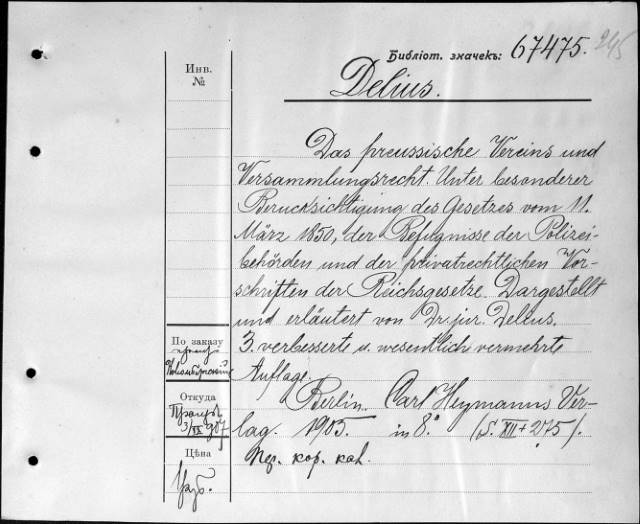 Библіот. значекъ: 67475. 245
Инв.
№
Delius.
Das preussische Vereins und
Versammlungsrecht. Unter besonderer
Berucksichtigung des Gesetzes vom 11.
März 1850, der Befugnisse der Polizei-
behörden und der privatrechtlichen Vor-
schriften der Reichsgesetze. Dargestellt
und erläutert von Dr. jur. Delius.
3. verbesserte u. wesentlich vermehrte
Auflage.
Berlin. Carl Heymanns Ver-
lag. 1905. in 8°. (S. XII + 275).
Пер. кор. каl.
По заказу
Откуда
3/IX 907
Цѣна